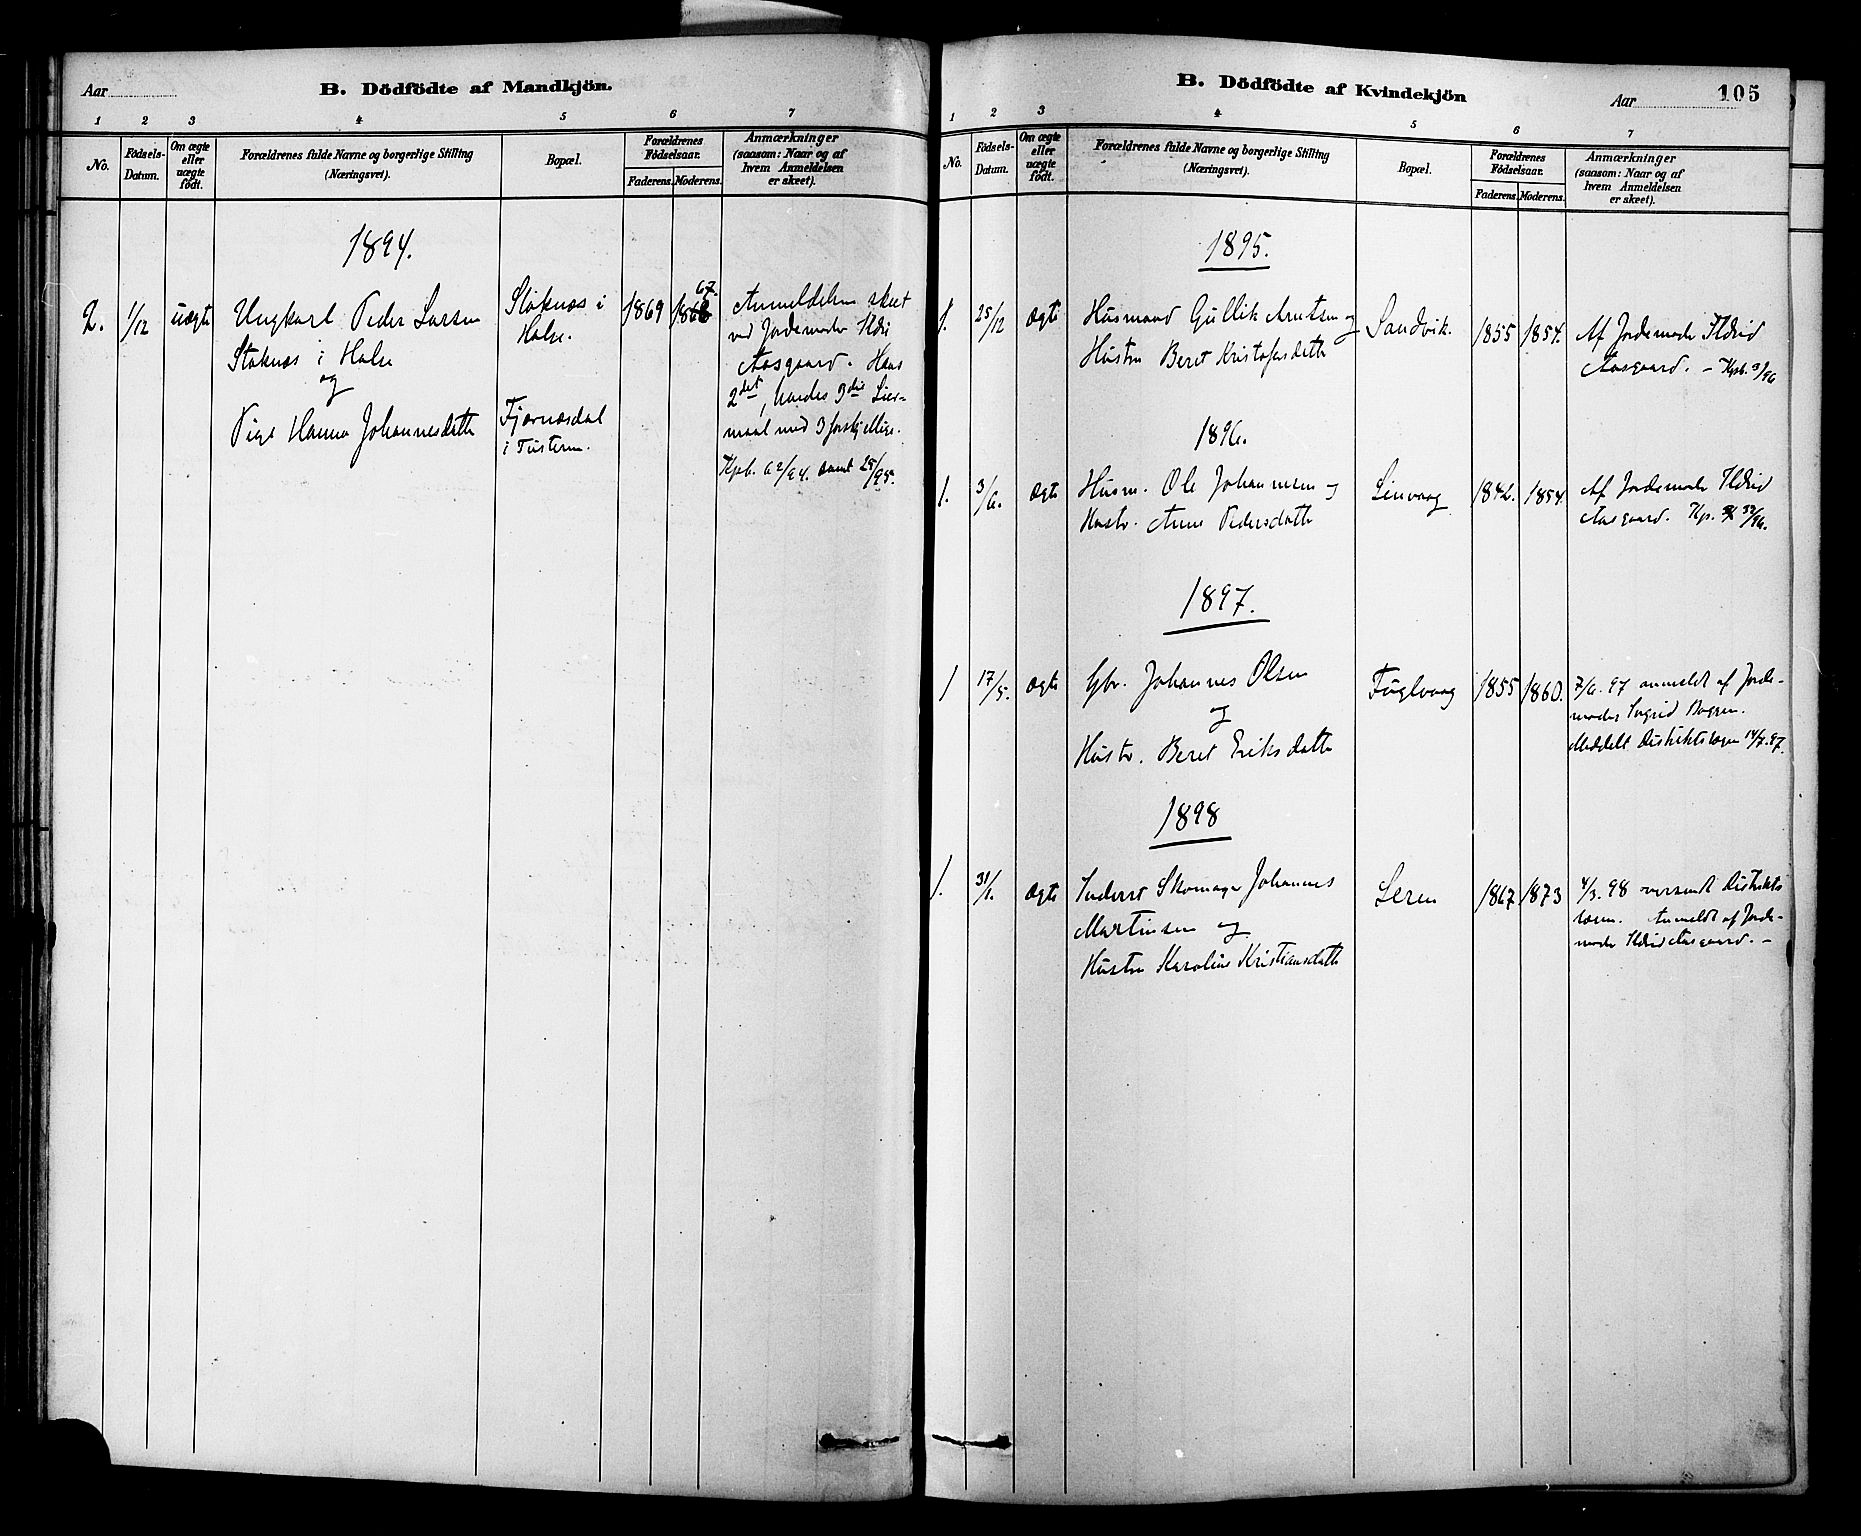 Aar
B. Dödfödte af Mandkjön.
1 2 3 4 5 6 7
No.
Födsels-
Datum.
Om ægte
eller
uægte
födt.
Forældrenes fulde Navne og borgerlige Stilling
(Næringsvei).
Bopæl.
Forældrenes
Födselsaar.
Faderens. Moderens.
Anmærkninger
(saasom: Naar og af
hvem Anmeldelsen
er skeet).
1894.
2. 1/12 uægte Ungkarl Peder Larsen
Stoknæs i Halse
og
Pige Hanna Johannesdatter
Stoknæs i
Halse.
Fjærnæsdal
i Tusteren.
1869 67.
Anmeldelsen skeet
ved Jordemoder Ildri
Aasgaard. Hans
2det, hendes 3die Leier-
maal med 3 forskjellige.
Kpb. 62/94. samt 25/95.
B. Dödfödte af Kvindekjön
Aar 105
1 2 3 4 5 6 7
No.
Födsels-
Datum.
Om ægte
eller
uægte
födt.
Forældrenes fulde Navne og borgerlige Stilling
(Næringsvei).
Bopæl.
Forældrenes
Födselsaar.
Faderens. Moderens.
Anmærkninger
(saasom: Naar og af
hvem Anmeldelsen
er skeet).
1895.
1. 25/12 ægte Husmand Gullik Arntsen og
Hustru Beret Kristofersdatter
Sandvik. 1855 1854.
Af Jordemoder Ildrid
Aasgaard. – Kpb. 3/96
1896.
1. 3/6. ægte Husm. Ole Johannesen og
Hustr. Anne Pedersdatter
Leirvaag 1842. 1854.
Af Jordemoder Ildrid
Aasgaard. Kp. 32/96.
1897.
1 17/5. ægte Gbr. Johannes Olsen
og
Hustr. Beret Eriksdatter
Fuglvaag 1855 1860.
7/6. 97 anmeldt af Jorde-
moder Ingrid
Meddelt Distriktslægen 14/7.97.
1898
1. 31/1. ægte Inderst Skomager Johannes
Martinsen og
Hustru Karoline Kristiansdatter
Leren 1867 1873
4/3. 98 oversendt Distrikts
lægen. Anmeldt af Jorde-
moder Ildrid Aasgaard. –